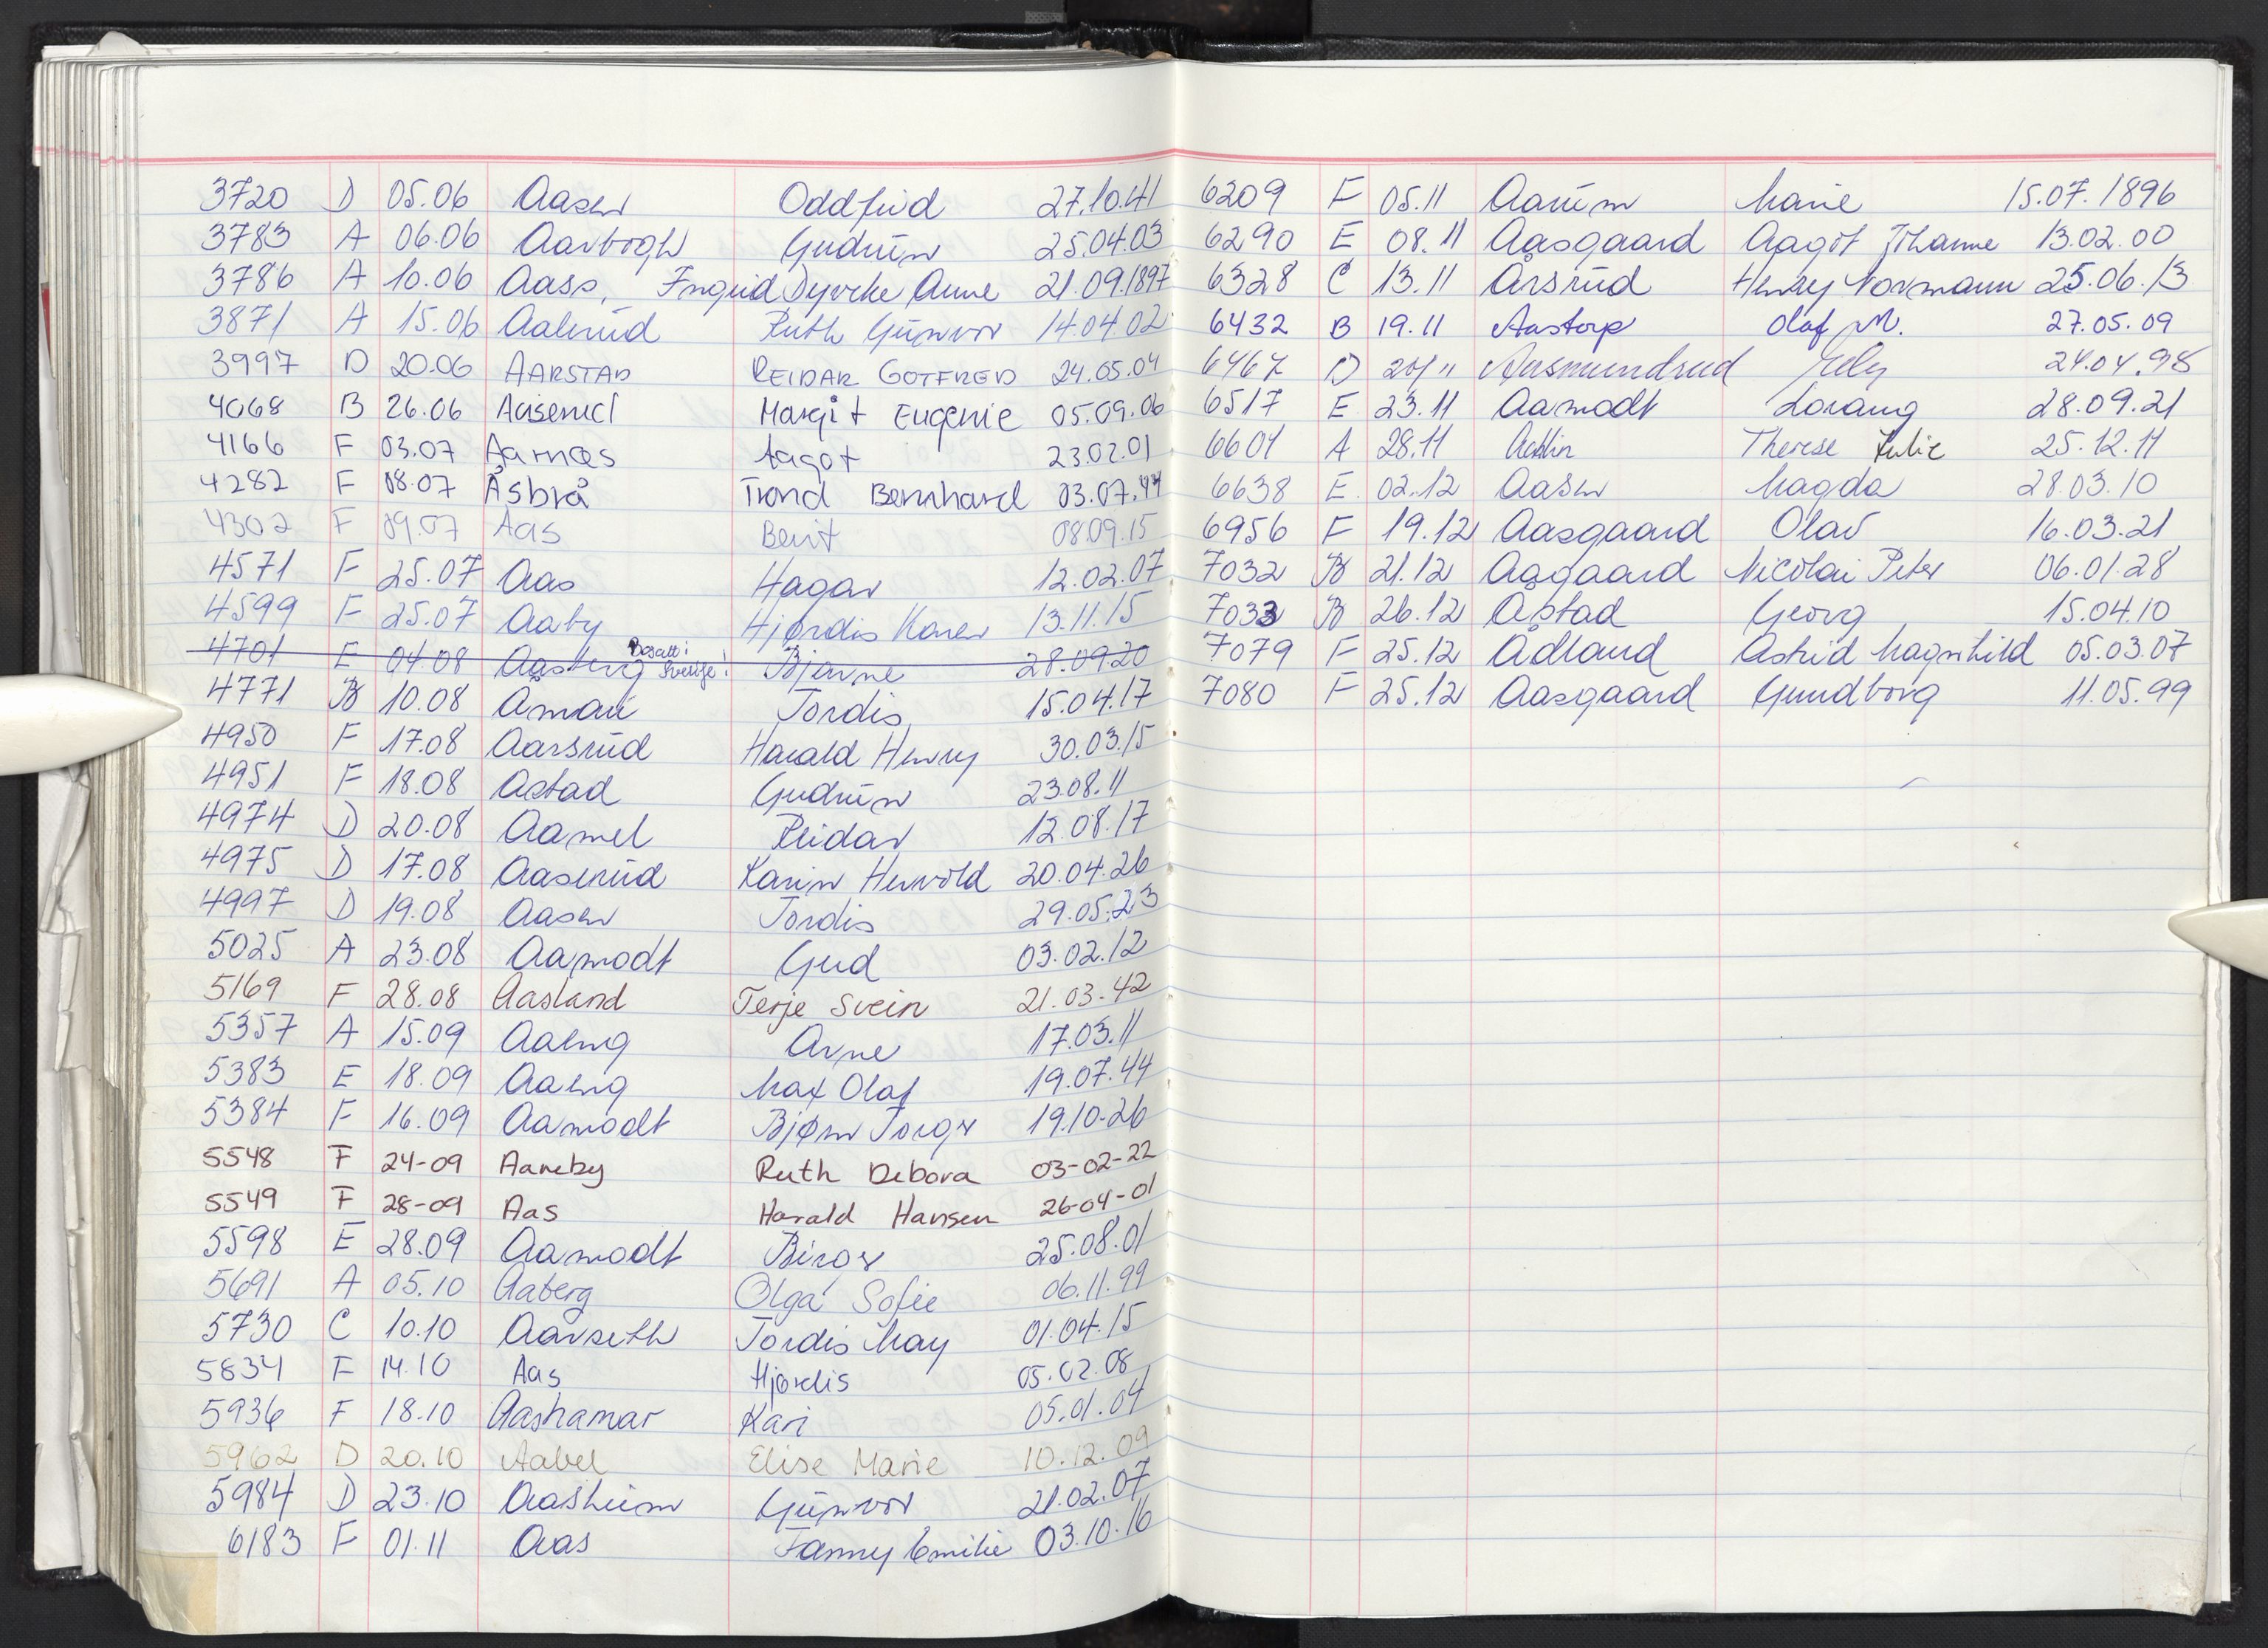 3720 D 05.06 Aasen Oddfrid 27.10.41
3783 A 06.06 Aarbogh Gudrun 25.04.03
3786 A 10.06 Aass, Ingrid Dyveke Anne 21.09.1897
3871 A 15.06 Aalerud Ruth Gunvor 14.04.02
3997 D 20.06 AARSTAD REIDAR GOTFRED 24.05.04
4068 B 26.06 Aaserud Margit Eugenie 05.09.06
4166 F 03.07 Aarnæs Aagot 23.02.01
4282 F 08.07 Åsbrå Trond Bernhard 03.07.44
4302 F 09.07 Aas Berit 08.09.15
4571 F 25.07 Aas Hagar 12.02.07
4599 F 25.07 Aaby Hjørdis Karen 13.11.15
4701 E 04.08 Aasberg Bosatt i Sverige! Bjarne 28.09.20
4771 B 10.08 Åmau Tordis 15.04.17
4950 F 17.08 Aarsrud Harald Henry 30.03.15
4951 F 18.08 Åstad Gudrun 23.08.11
4974 D 20.08 Aamel Reidar 12.08.17
4975 D 17.08 Aaserud Karin Hervold 20.04.26
4997 D 19.08 Aasen Tordis 29.05.23
5025 A 23.08 Aamodt Gud 03.02.12
5169 F 28.08 Aasland Terje Svein 21.03.42
5357 A 15.09 Aaeng Arne 17.03.11
5383 E 18.09 Aaeng Max Olaf 19.07.44
5384 F 16.09 Aamodt Bjørn Torger 19.10.26
5548 F 24-09 Aaneby Ruth Debora 03-02-22
5549 F 28-09 Aas Harald Hansen 26-04-01
5598 E 28.09 Aamodt Birger 25.08.01
5691 A 05.10 Aaberg Olga Sofie 06.11.99
5730 C 10.10 Aarseth Tordis May 01.04.15
5834 F 14.10 Aas Hjørdis 05.02.08
5936 F 18.10 Aashamar Kari 05.01.04
5962 D 20.10 Aabel Elise Marie 10.12.09
5984 D 23.10 Aasheim Gunvor 21.02.07
6183 F 01.11 Aas Fanny Emilie 03.10.16
6209 F 05.11 Aarum Marie 15.07.1896
6290 E 08.11 Aasgaard Aagot Johanne 13.02.00
6328 C 13.11 Årsrud Henry Normann 25.06.13
6432 B 19.11 Aastorp Olaf M. 27.05.09
6467 D 20/11 Aasmundrud 24.04.98
6517 E 23.11 Aamodt Lorang 28.09.21
6601 A 28.11 Therese Julie 25.12.11
6638 E 02.12 Aasen Magda 28.03.10
6956 F 19.12 Aasgaard Olav 16.03.21
7032 B 21.12 Aagaard Nicolai Peter 06.01.28
7033 B 26.12 Åstad Georg 15.04.10
7079 F 25.12 Ådland Astrid Magnhild 05.03.07
7080 F 25.12 Aasgaard Gundborg 11.05.99